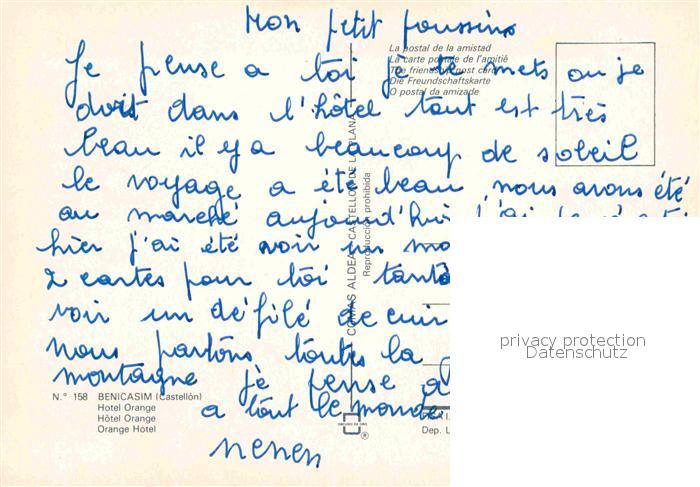 Mon petit poussins
Je pense a toi je te mets ou je
doit dans l'hôtel tout est très
beau il y a beaucoup de soleil
le voyage a été beau nous avons été
au marché aujourd'hui j'ai
hier j'ai été voir un
2 cartes pour toi
voir un défilé de cuir
nous partons toutes la
montagne je pense a
a tout le monde
nenen
La postal de la amistad
La carte postale de l'amitié
The friendship post card
Die Freundschaftskarte
O postal da amizade
COMAS ALDEA CASTELLON DE LA PLANA
Reproducción prohibida
N.° 158 BENICASIM (Castellón)
Hotel Orange
Hôtel Orange
Orange Hotel
Dep. L
®
privacy protection
Datenschutz